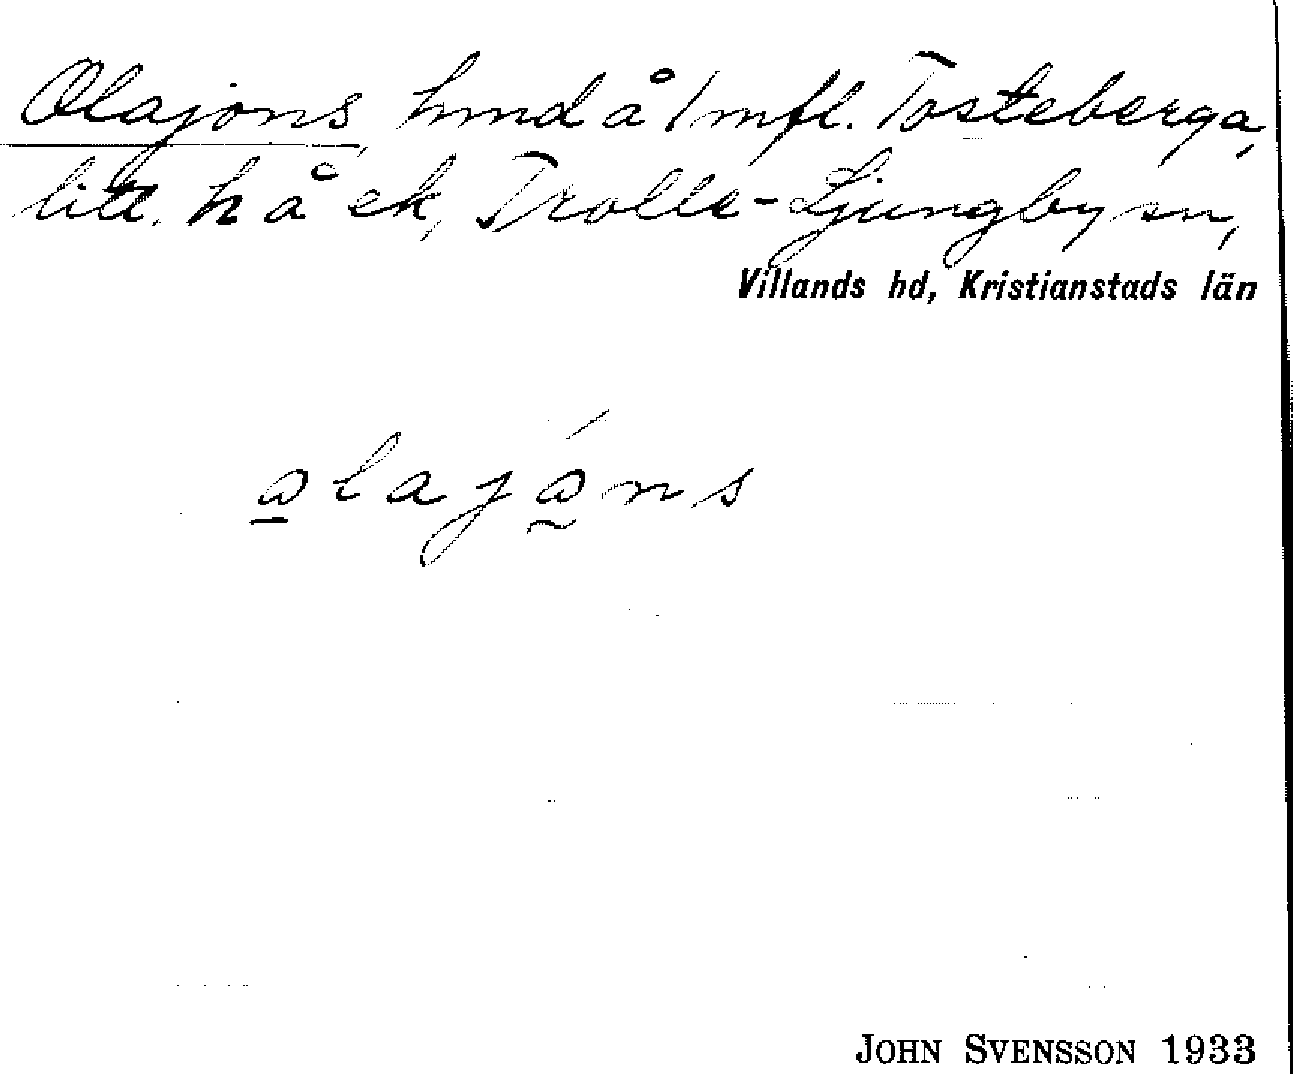 Olajons, hmd å 1/ mfl. Tosteberga,
litt. h å ek, Trolle-Ljungby sn,
Villands hd, Kristianstads län
olajóns
JOHN SVENSSON 1933